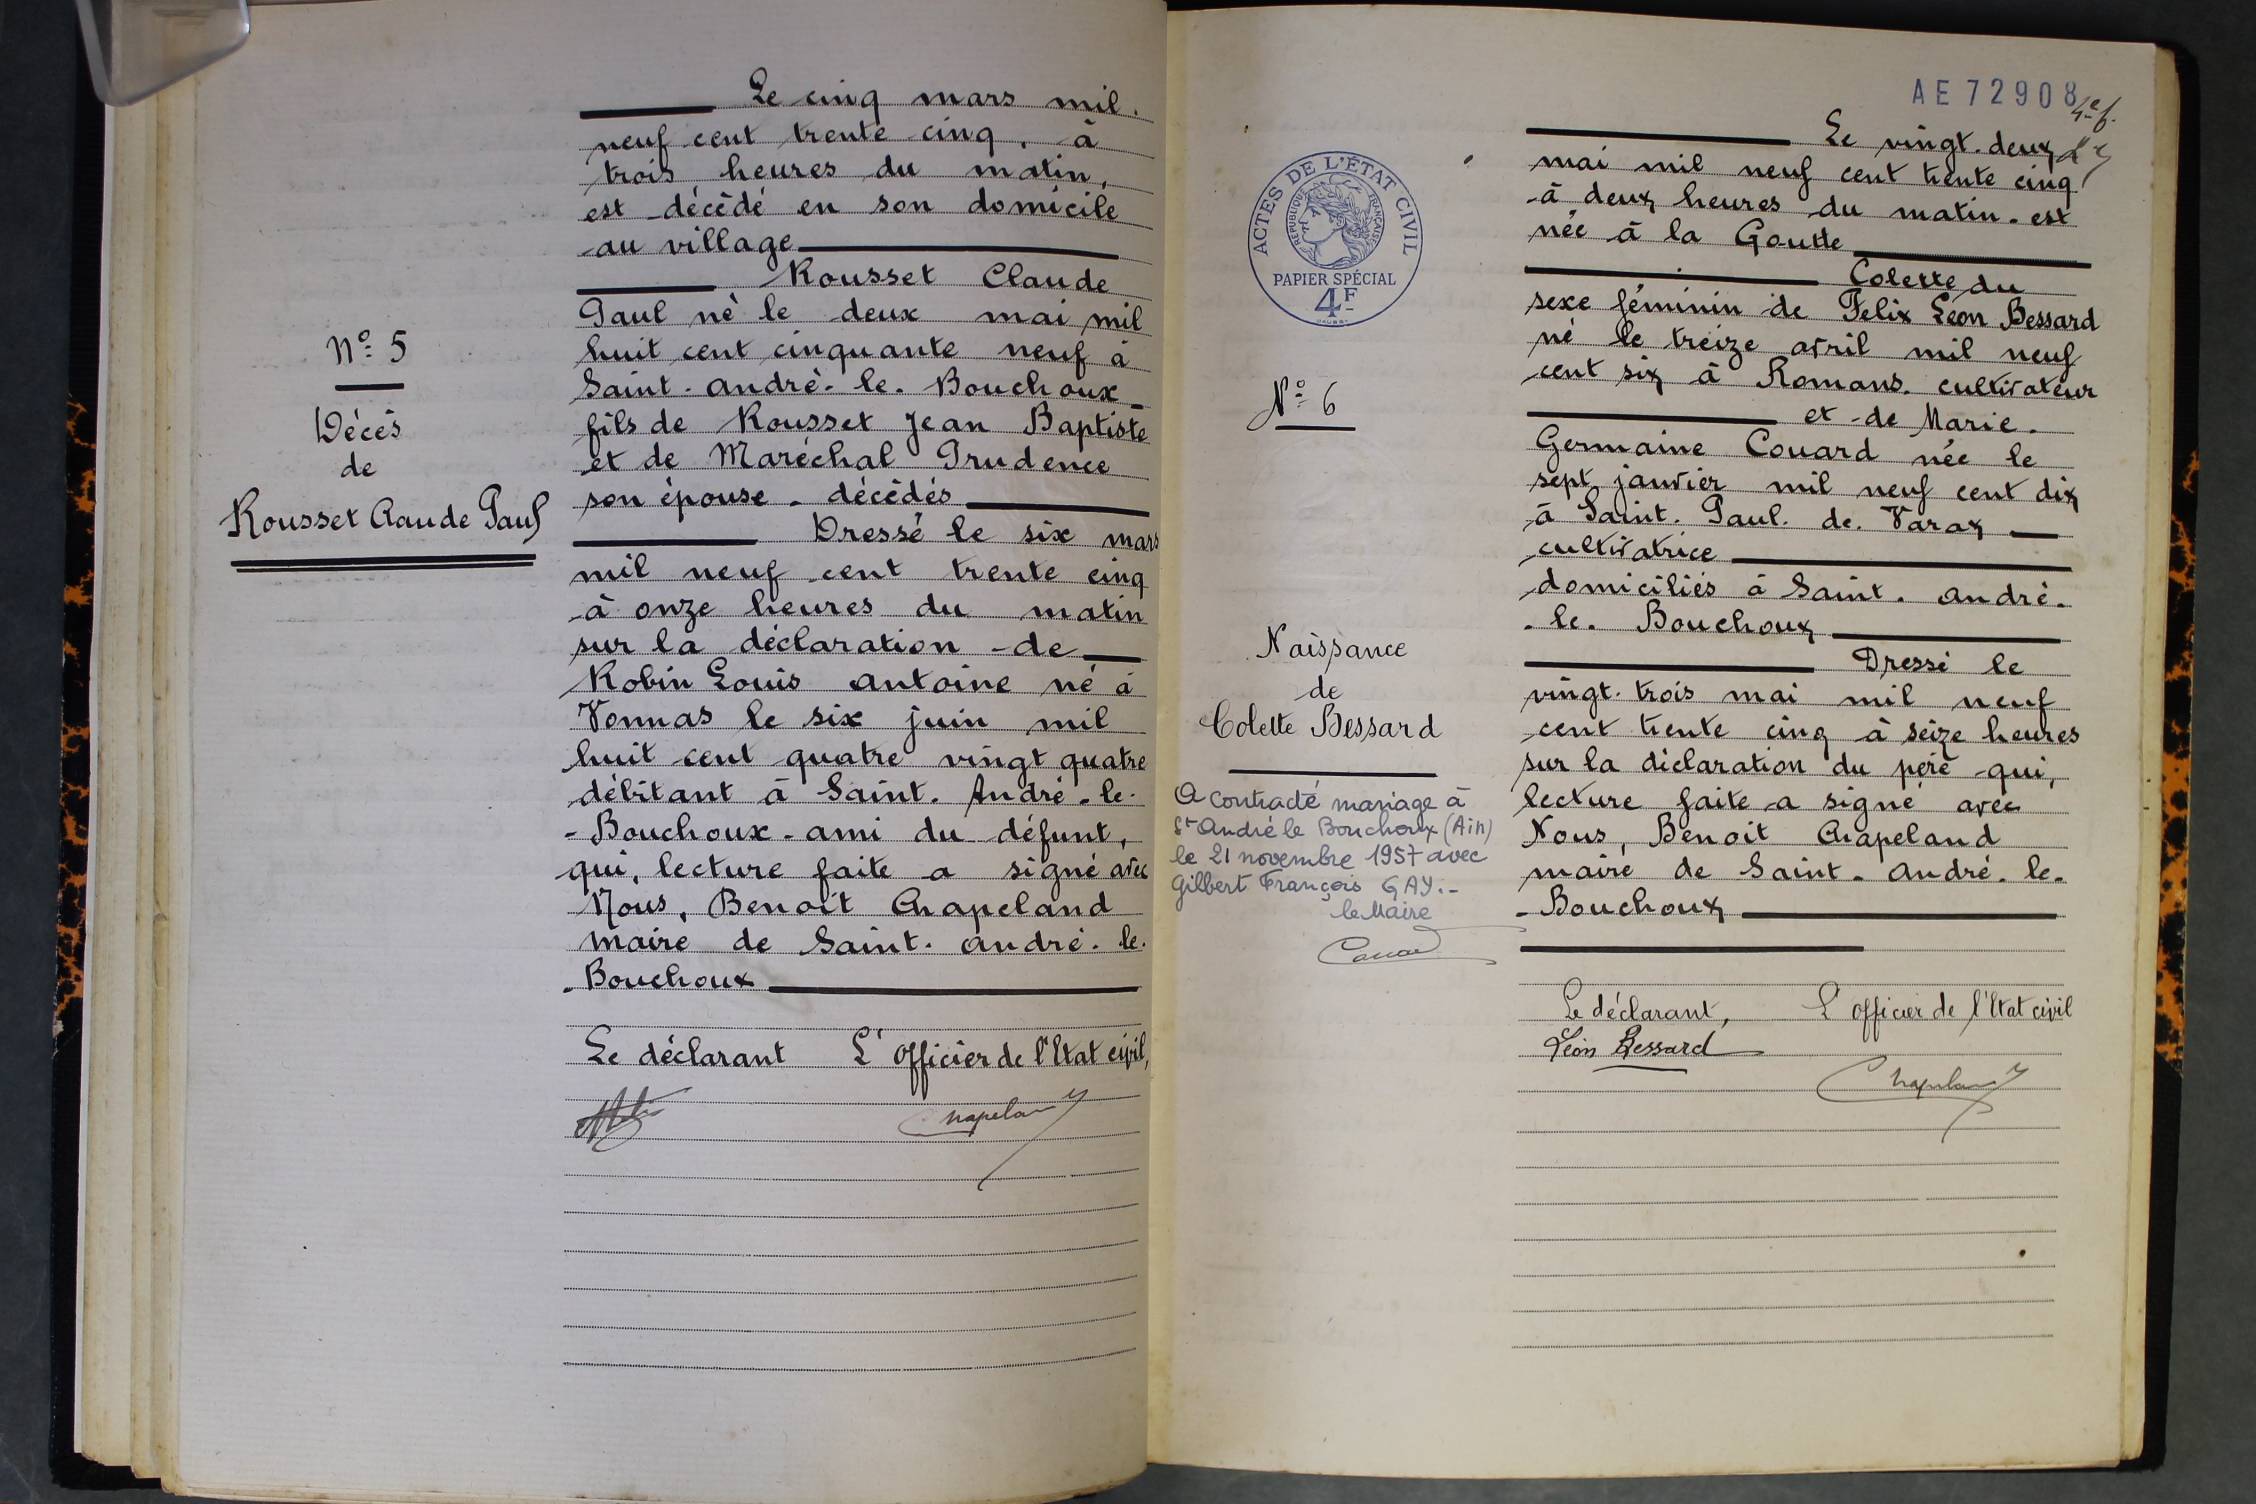 Nº 5
Décès
de
Rousset Claude Paul
Le cinq mars mil.
neuf cent trente cinq, à
trois heures du matin,
est décédé en son domicile
au village
Rousset Claude
Paul né le deux mai mil
huit cent cinquante neuf à
Saint-André-le-Bouchoux
fils de Rousset Jean Baptiste
et de Maréchal Prudence
son épouse - décédés
Dressé le six mars
mil neuf cent trente cinq
à onze heures du matin
sur la déclaration de
Robin Louis Antoine né à
Vonnas le six juin mil
huit cent quatre vingt quatre
débitant à Saint-André-le-
-Bouchoux - ami du défunt,
qui, lecture faite a signé avec
Nous, Benoit Chapeland
maire de Saint-André-le-
-Bouchoux
Le déclarant L'officier de l'Etat civil,
Chapeland
AE 72908
4e f.
ACTES DE L'ÉTAT CIVIL
RÉPUBLIQUE FRANÇAISE
PAPIER SPÉCIAL
4F
Nº 6
Naissance
de
Colette Bessard
A contracté mariage à
St André le Bouchoux (Ain)
le 21 novembre 1957 avec
Gilbert François GAY.-
le Maire
Le vingt-deux
mai mil neuf cent trente cinq
à deux heures du matin - est
née à la Goutte
Colette du
sexe féminin de Felix Léon Bessard
né le treize avril mil neuf
cent six à Romans. cultivateur
et de Marie.
Germaine Couard née le
sept janvier mil neuf cent dix
à Saint-Paul-de-Varax
cultivatrice
domiciliés à Saint-André-
-le-Bouchoux
Dressé le
vingt-trois mai mil neuf
cent trente cinq à seize heures
sur la déclaration du père qui,
lecture faite a signé avec
Nous, Benoit Chapeland
maire de Saint-André-le-
-Bouchoux
Le déclarant, L'officier de l'Etat civil
Léon Bessard
Chapeland